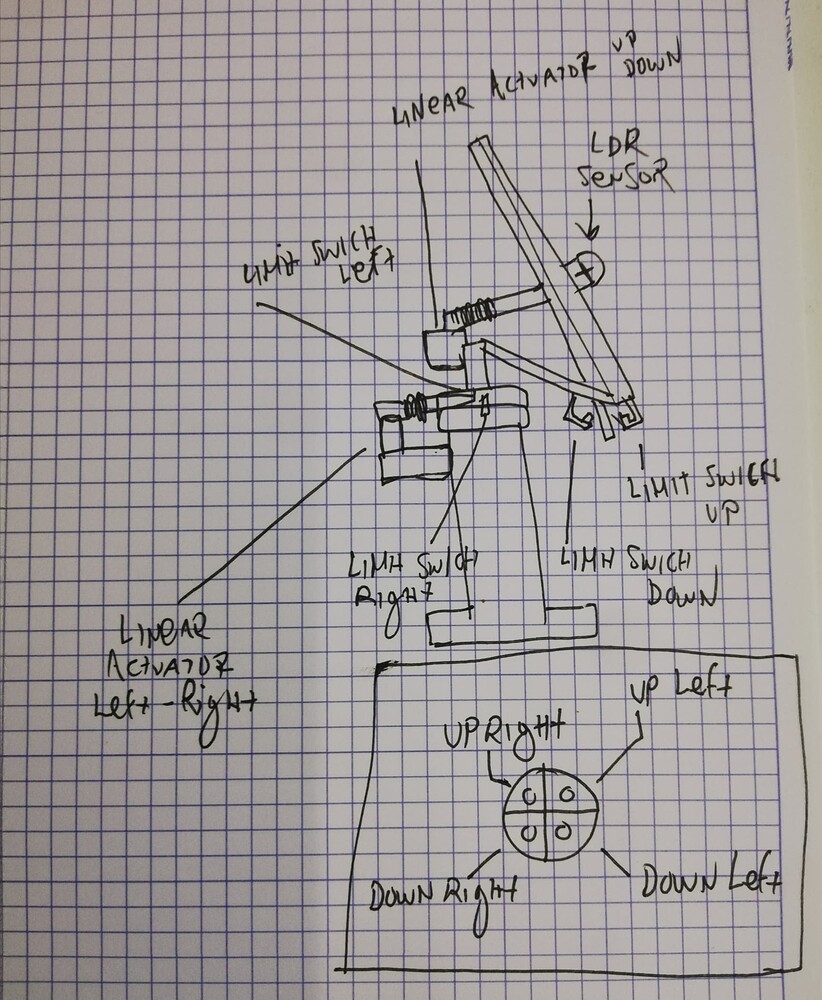 LINEAR ACTUATOR UP
DOWN
LDR
SENSOR
LIMIT SWICH
Left
LIMIT SWICH
UP
LIMIT SWICH
Right
LIMIT SWICH
DOWN
LINEAR
ACTUATOR
Left - Right
UP Left
UP Right
DOWN Right
DOWN Left